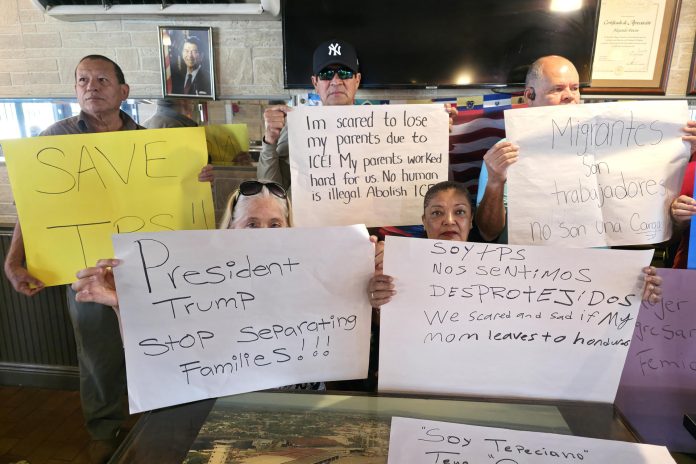 SAVE
TPS!!
Im scared to lose
my parents due to
ICE! My parents worked
hard for us. No human
is illegal Abolish ICE
Migrantes
son
trabajadores
no son una Carga
President
Trump
Stop Separating
Families!!!
SOY TPS
NOS SENTIMOS
DESPROTEJIDOS
We scared and sad if My
mom leaves to honduras
"Soy Tepeciano"
NY